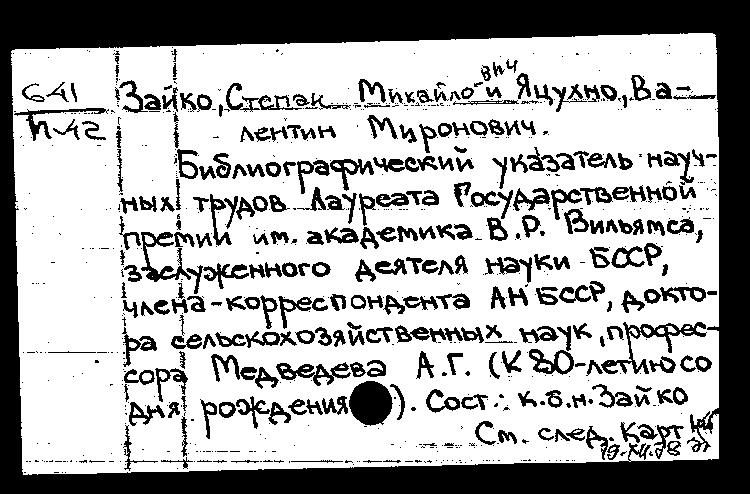 641
П-42
Зайко, Степан Михайлович и Яцухно, Ва-
лентин Миронович.
Библиографический указатель науч-
ных трудов Лауреата Государственной
премии им. академика В.Р. Вильямса,
заслуженного деятеля науки БССР,
члена-корреспондента АН БССР, докто-
ра сельскохозяйственных наук, профес-
сора Медведева А.Г. (К 80-летию со
дня рождения). Сост.: к.б.н. Зайко
См. след. карт
19-XII.78